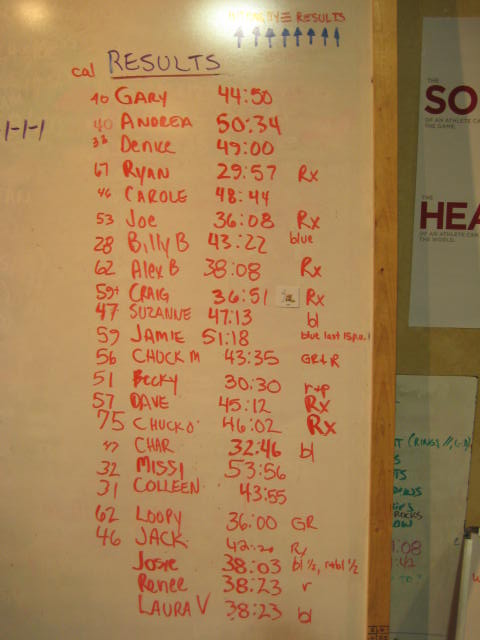 RESULTS
cal RESULTS
-1-1-1
40 GARY 44:50
40 ANDREA 50:34
Denice 49:00
67 RYAN 29:57 Rx
46 CAROLE 48:44
53 Joe 36:08 Rx
28 Billy B 43:22 blue
62 Alex B 38:08 Rx
59+ CRAIG 36:51 Rx
47 SUZANNE 47:13 bl
59 JAMIE 51:18 blue last 15 p.u.!
56 CHUCK M 43:35 GR+R
51 Becky 30:30 r+p
57 DAVE 45:12 Rx
75 CHUCK O' 46:02 Rx
CHAR 32:46 bl
32 MISSI 53:56
31 COLLEEN 43:55
62 LOOPY 36:00 GR
46 JACK 42:20 Rx
Josie 38:03 bl ½, r+bl ½
Renee 38:23 r
LAURA V 38:23 bl
THE
SO
OF AN ATHLETE CA
THE GAME.
THE
HEA
OF AN ATHLETE CAN
THE WORLD.
T (RINGS
ROCKS
OW
1:08